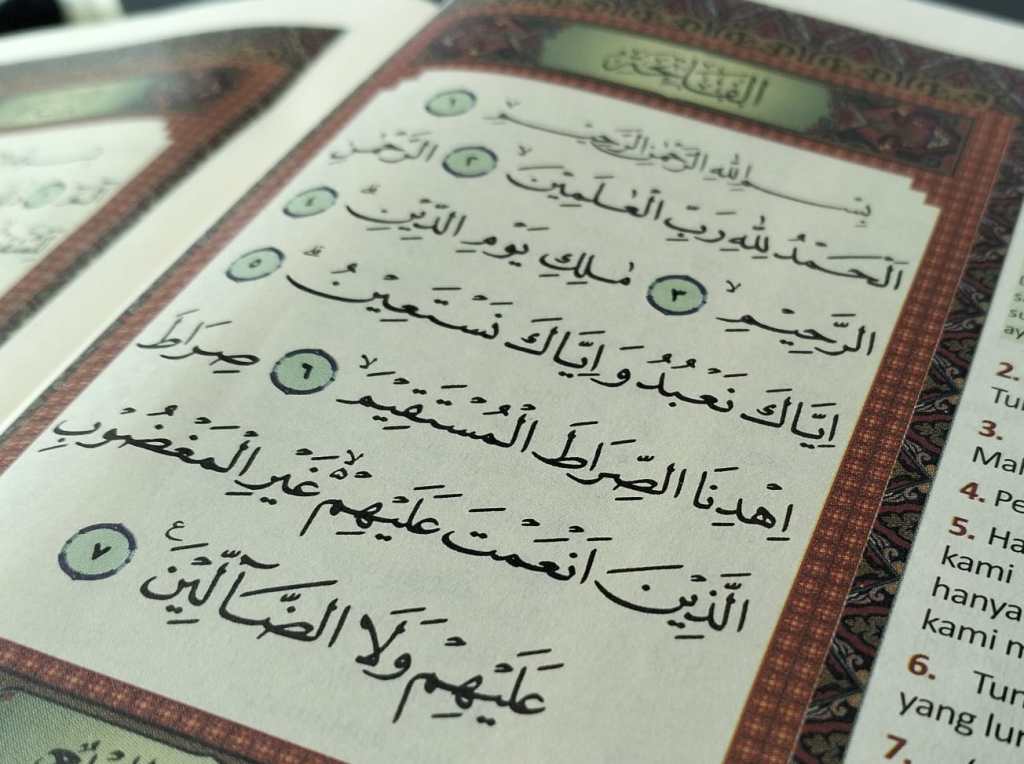 الفاتحة
بِسْمِ اللّٰهِ الرَّحْمٰنِ الرَّحِيْمِۙ ١
اَلْحَمْدُ لِلّٰهِ رَبِّ الْعٰلَمِيْنَۙ ٢ الرَّحْمٰنِ
الرَّحِيْمِۙ ٣ مٰلِكِ يَوْمِ الدِّيْنِۗ ٤
اِيَّاكَ نَعْبُدُ وَاِيَّاكَ نَسْتَعِيْنُۗ ٥
اِهْدِنَا الصِّرَاطَ الْمُسْتَقِيْمَۙ ٦ صِرَاطَ
الَّذِيْنَ اَنْعَمْتَ عَلَيْهِمْ ەۙ غَيْرِ الْمَغْضُوْبِ
عَلَيْهِمْ وَلَا الضَّاۤلِّيْنَࣖ ٧
2.
3.
Mal
4. Pe
5. Ha
kami
hanya
kami m
6. Tun
yang lur
7.